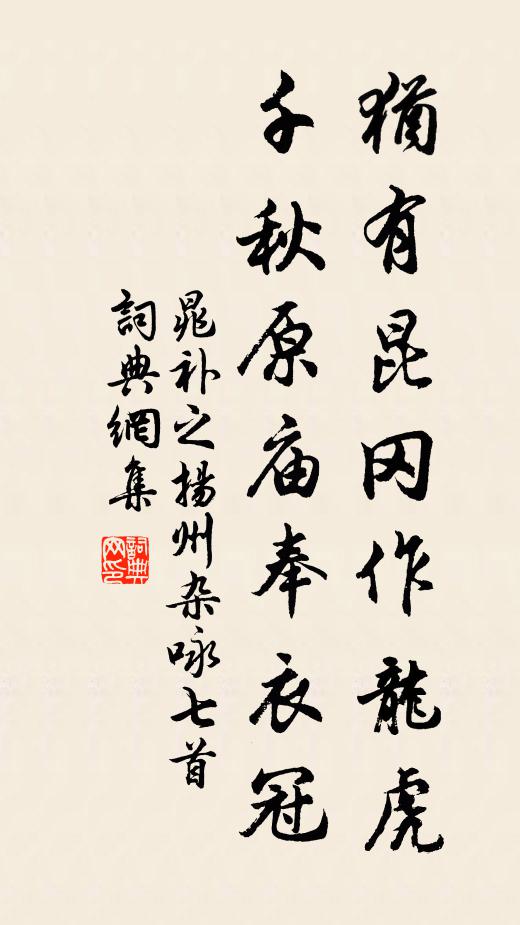 猶有昆冈作龍虎
千秋原庙奉衣冠
晁补之揚州杂咏七首
詞典網集
詞典网印